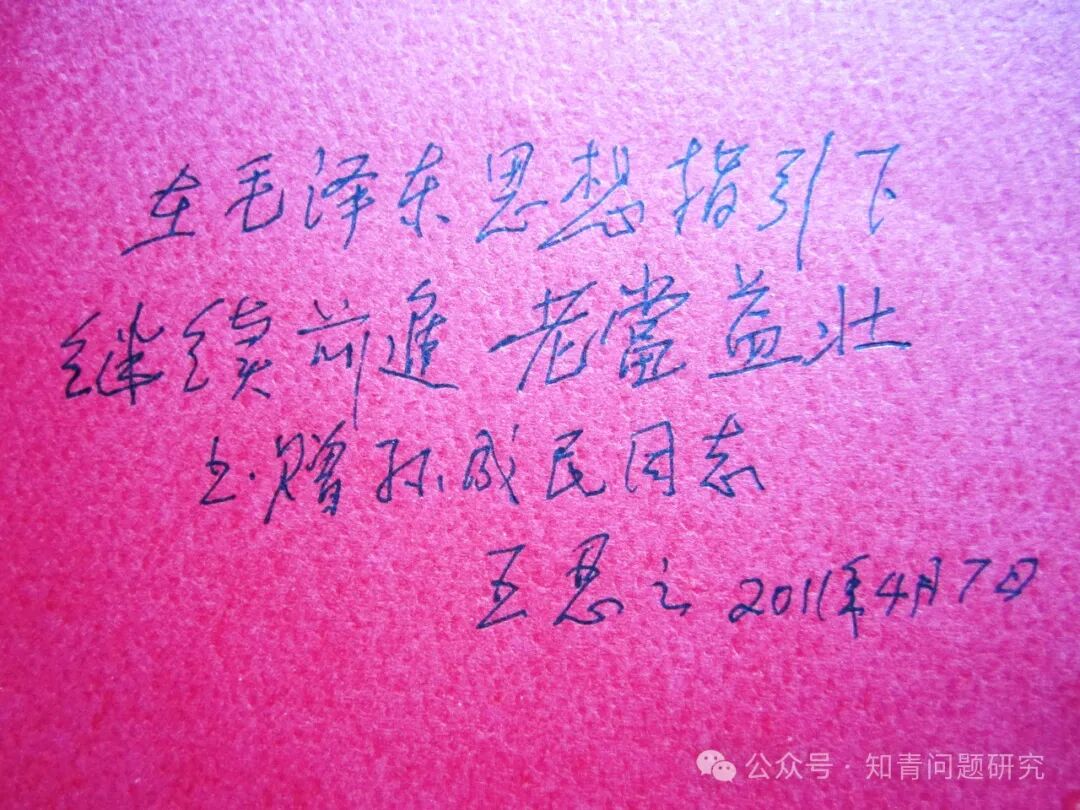 在毛泽东思想指引下
继续前進 老當益壮
赠孙成民同志
王思之 2011年4月7日
公众号·知青问题研究